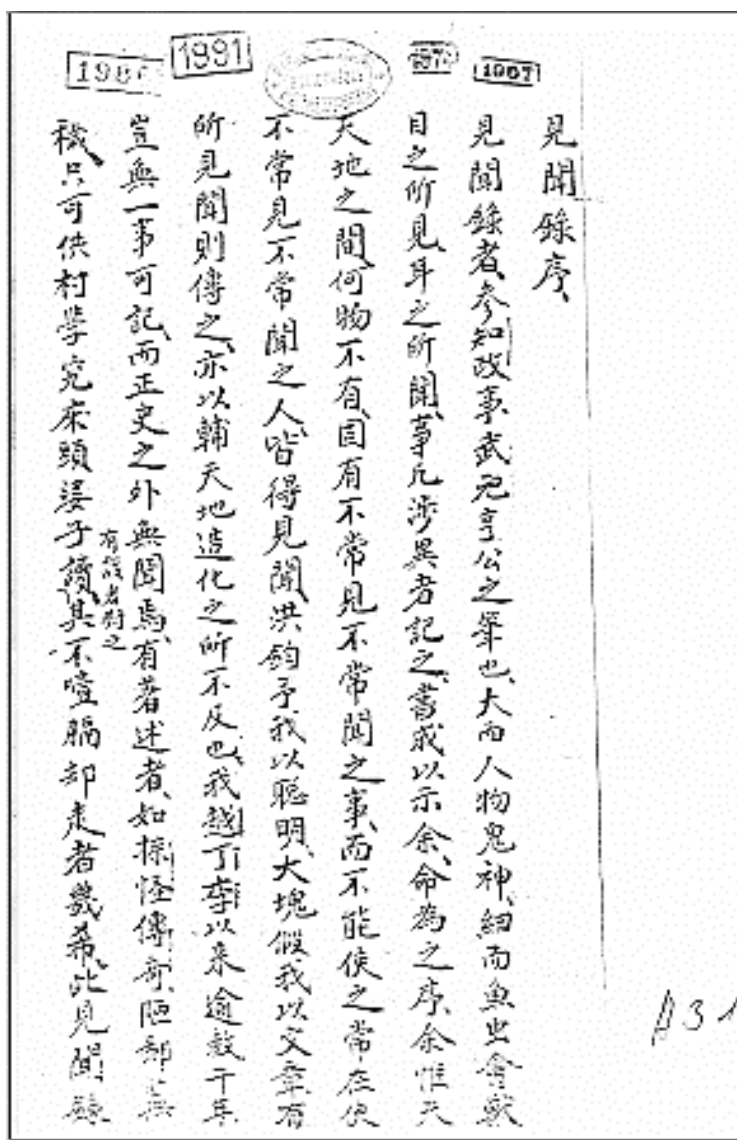 1967
1991
見聞錄序、
見聞錄者、參知政事武元亨公之筆也、大而人物鬼神、細而魚虫禽獸
目之所見、耳之所聞、事凡涉異者記之、書成以示余、命為之序、余惟天
天地之間、何物不有、固有不常見不常聞之事、而不能使之常在使
不常見不常聞之人、皆得見聞、洪鈞予我以聰明、大塊假我以文章、有
所見聞則傳之、亦以輔天地造化之所不及也、我越丁李以來、逾數千年
豈無一事可記、而正史之外無聞焉、有著述者、如採怪傳奇、陋鄙無
稽、只可供村學究床頭婆子讀、其不噎膈却走者幾希、此見聞錄
有識者對之
A31